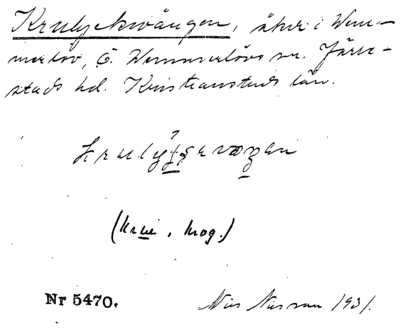 Krulyckvången, åker i Wem-
merlöv, Ö. Wemmerlövs sn. Järre-
stads hd. Kristianstads län.
(krue, krog.)
Nr 5470.
Nils Nilsson 1931.